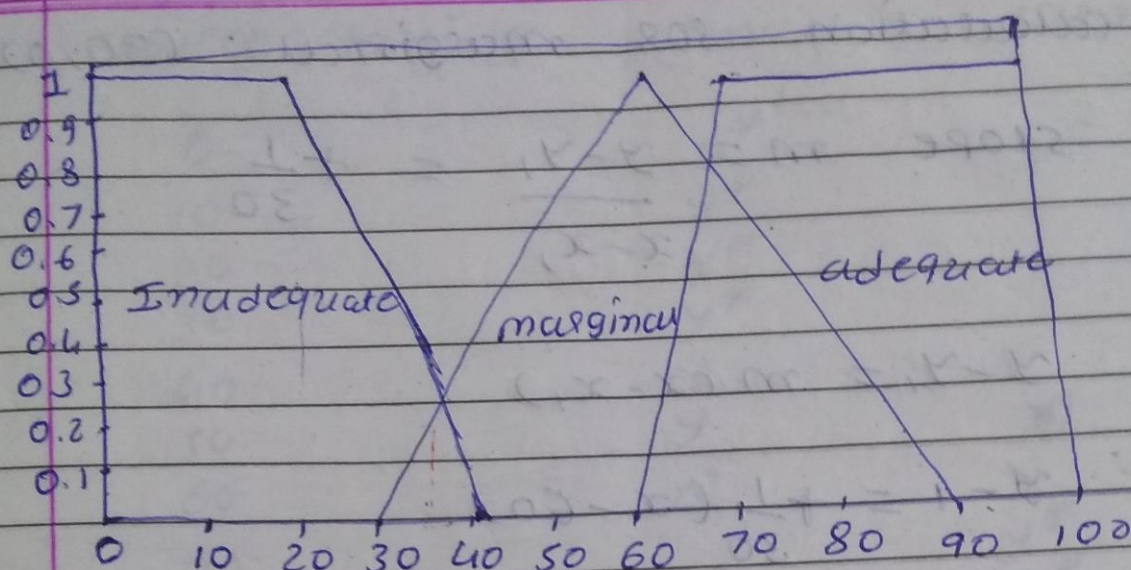 1
0.9
0.8
0.7
0.6
0.5
0.4
0.3
0.2
0.1
Inadequate
marginal
adequate
0 10 20 30 40 50 60 70 80 90 100